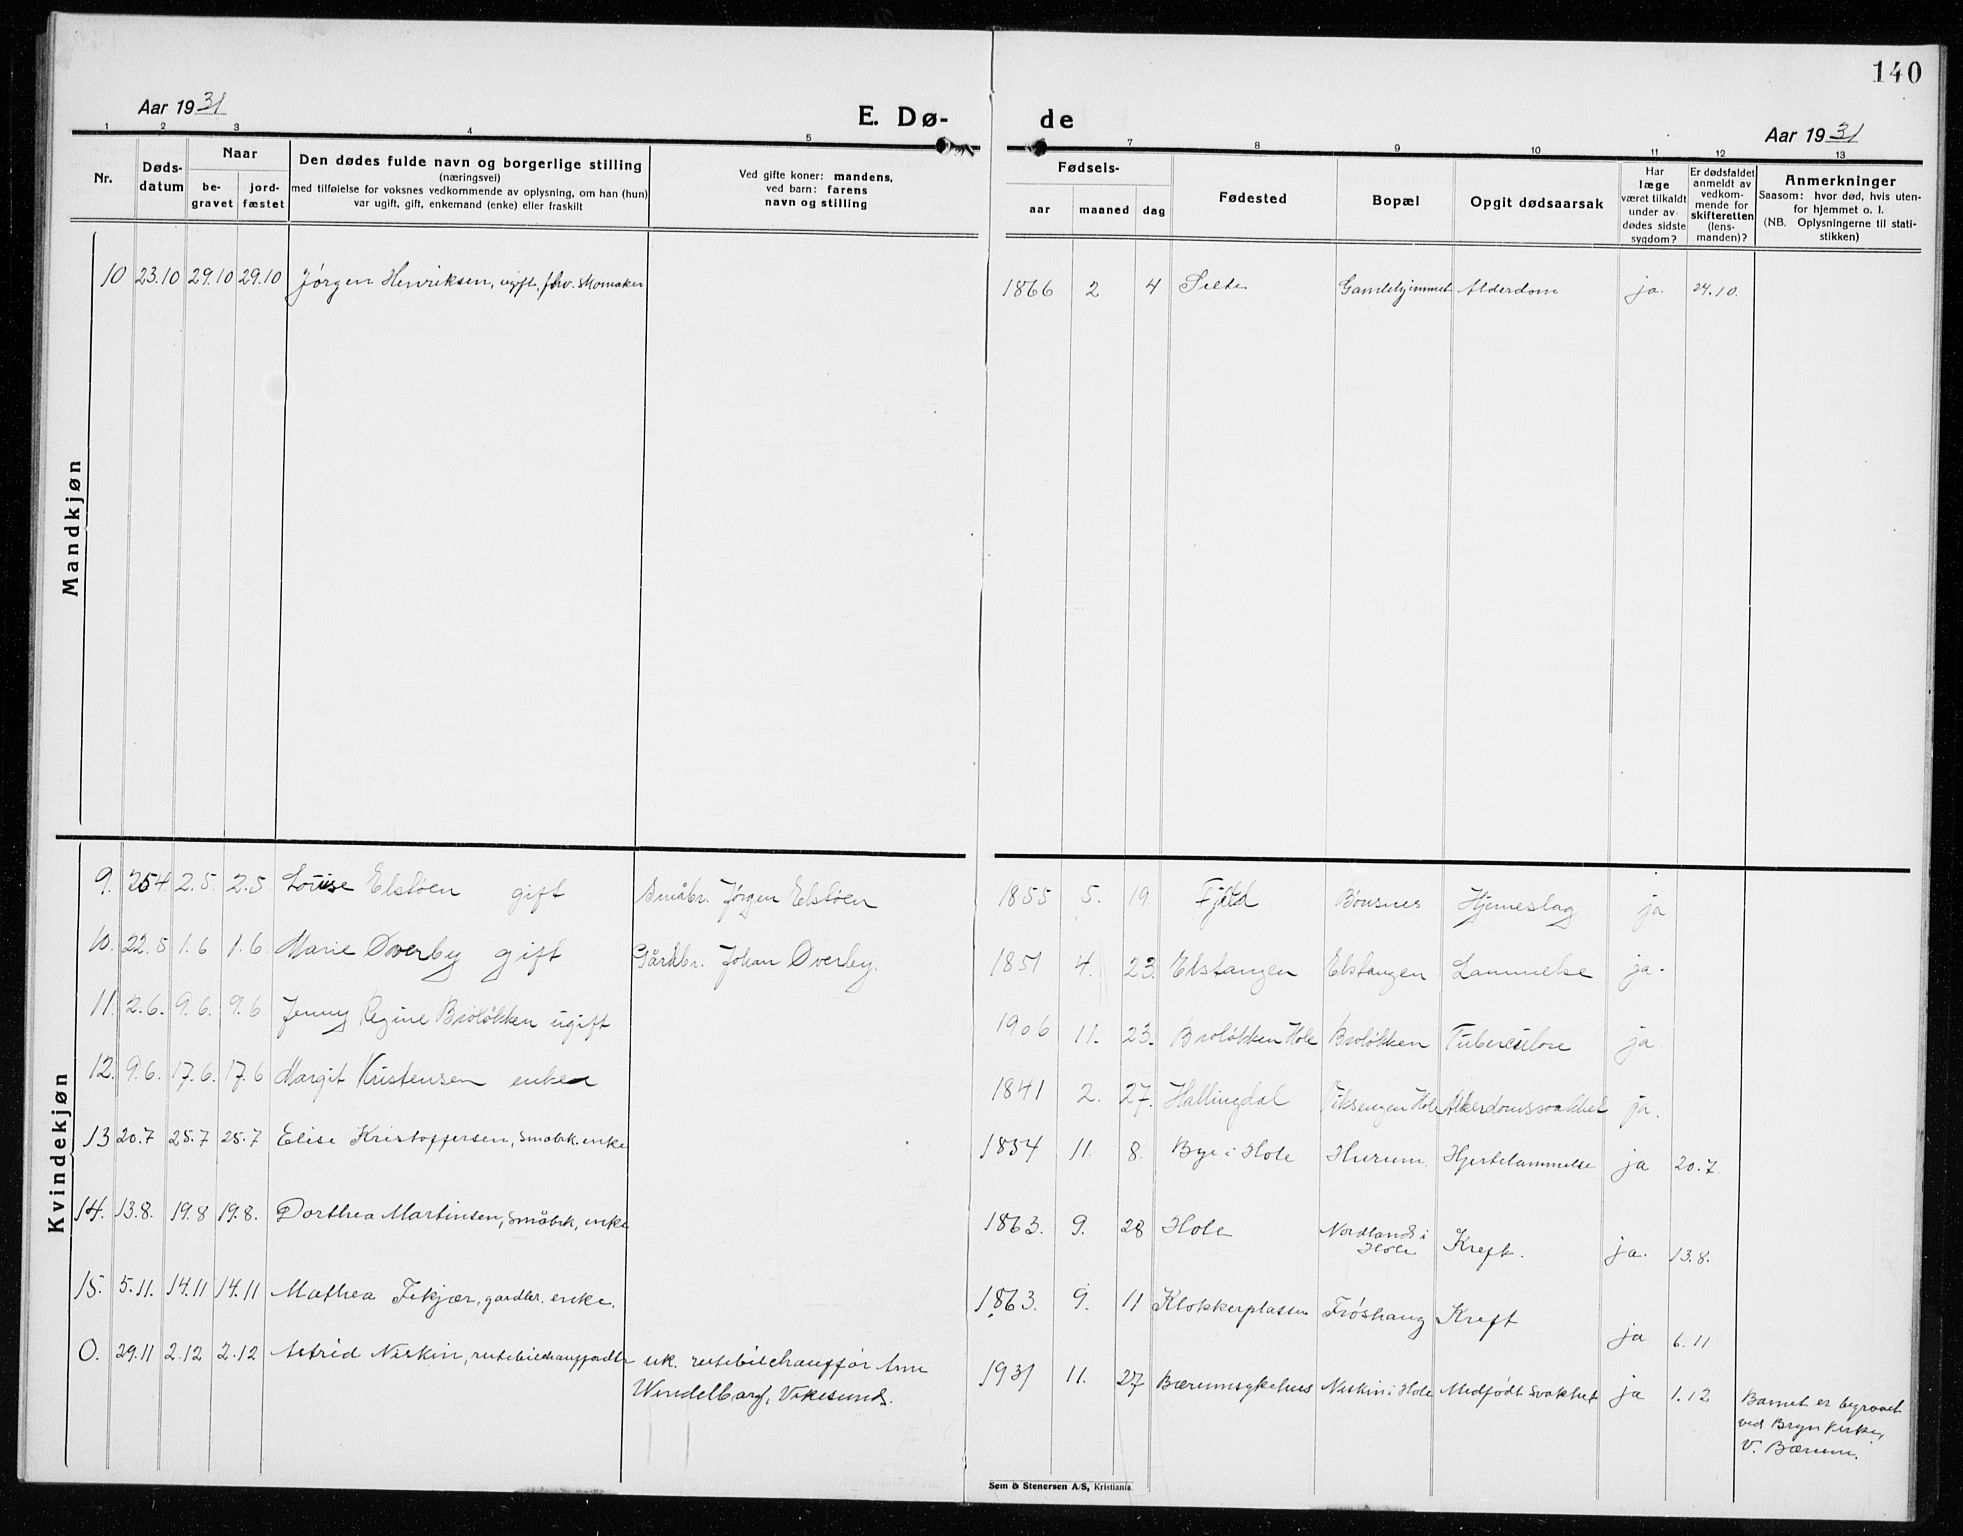 140
Aar 1931
E. Dø-
de
Aar 1931
1 2 3 4 5 7 8 9 10 11 12 13
Nr.
Døds-
datum
Naar
be-
gravet
jord-
fæstet
Den dødes fulde navn og borgerlige stilling
(næringsvei)
med tilføielse for voksnes vedkommende av oplysning, om han (hun)
var ugift, gift, enkemand (enke) eller fraskilt
Ved gifte koner: mandens,
ved barn: farens
navn og stilling
Fødsels-
aar
maaned
dag
Fødested
Bopæl
Opgit dødsaarsak
Har
læge
været tilkaldt
under av-
dødes sidste
sygdom?
Er dødsfaldet
anmeldt av
vedkom-
mende for
skifteretten
(lens-
manden)?
Anmerkninger
Saasom: hvor død, hvis uten-
for hjemmet o. l.
(NB. Oplysningerne til stati-
stikken)
Mandkjøn
10 23.10 29.10 29.10 Jørgen Henriksen, ugift, fhv. 1866 2 4 Gamlehjemmet Alderdom ja. 24.10.
Kvindekjøn
9. 25.4 2.5. 2.5 Louise Elstøen gift Småbr. Jørgen Elstøen 1855 5. 19 Fjeld Bønsnes Hjerneslag ja
10. 22.5 1.6 1.6. Marie Øverby gift Gårdbr. Johan Øverby. 1851 4. 23. Elstangen Elstangen Lammelse ja.
11. 2.6. 9.6. 9.6 Jenny Regine Broløkken ugift 1906 11. 23. Broløkken Hole Broløkken Tuberculose ja.
12. 9.6. 17.6. 17.6 Margit Kristensen enke 1841 2. 27. Hallingdal Viksengen Hole Alderdomssvakhet ja.
13 20.7 25.7 25.7 Elise Kristoffersen, småbrk. enke 1854 11. 8. Bye i Hole Hurum Hjertelammelse ja 20.7
14. 13.8. 19.8 19.8. Dorthea Martinsen, småbrk, enke 1863. 9. 28 Hole Nordland i
Hole Kreft. ja. 13.8.
15. 5.11. 14.11 14.11 Mathea Fekjær, gardbr. enke. 1863. 9. 11 Klokkerplassen Frøshaug Kreft ja 6.11
0. 29.11 2.12 2.12 Astrid Neskin, uk. rutebilchauffør Arne
Windelborg, Vikesund. 1931 11. 27 Bærumsykehus Neskin i Hole Medfødt svakhet ja 1.12 Barnet er begravet
ved Bryn kirke,
V. Bærum.
Sem & Stenersen A/S, Kristiania.